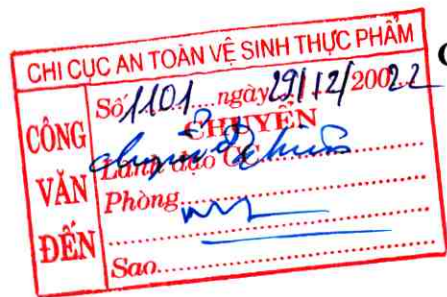 CHI CỤC AN TOÀN VỆ SINH THỰC PHẨM
CÔNG VĂN ĐẾN
Số 1101 ngày 29/12/20022
CHUYỂN
Lãnh đạo CC
Phòng
Sao